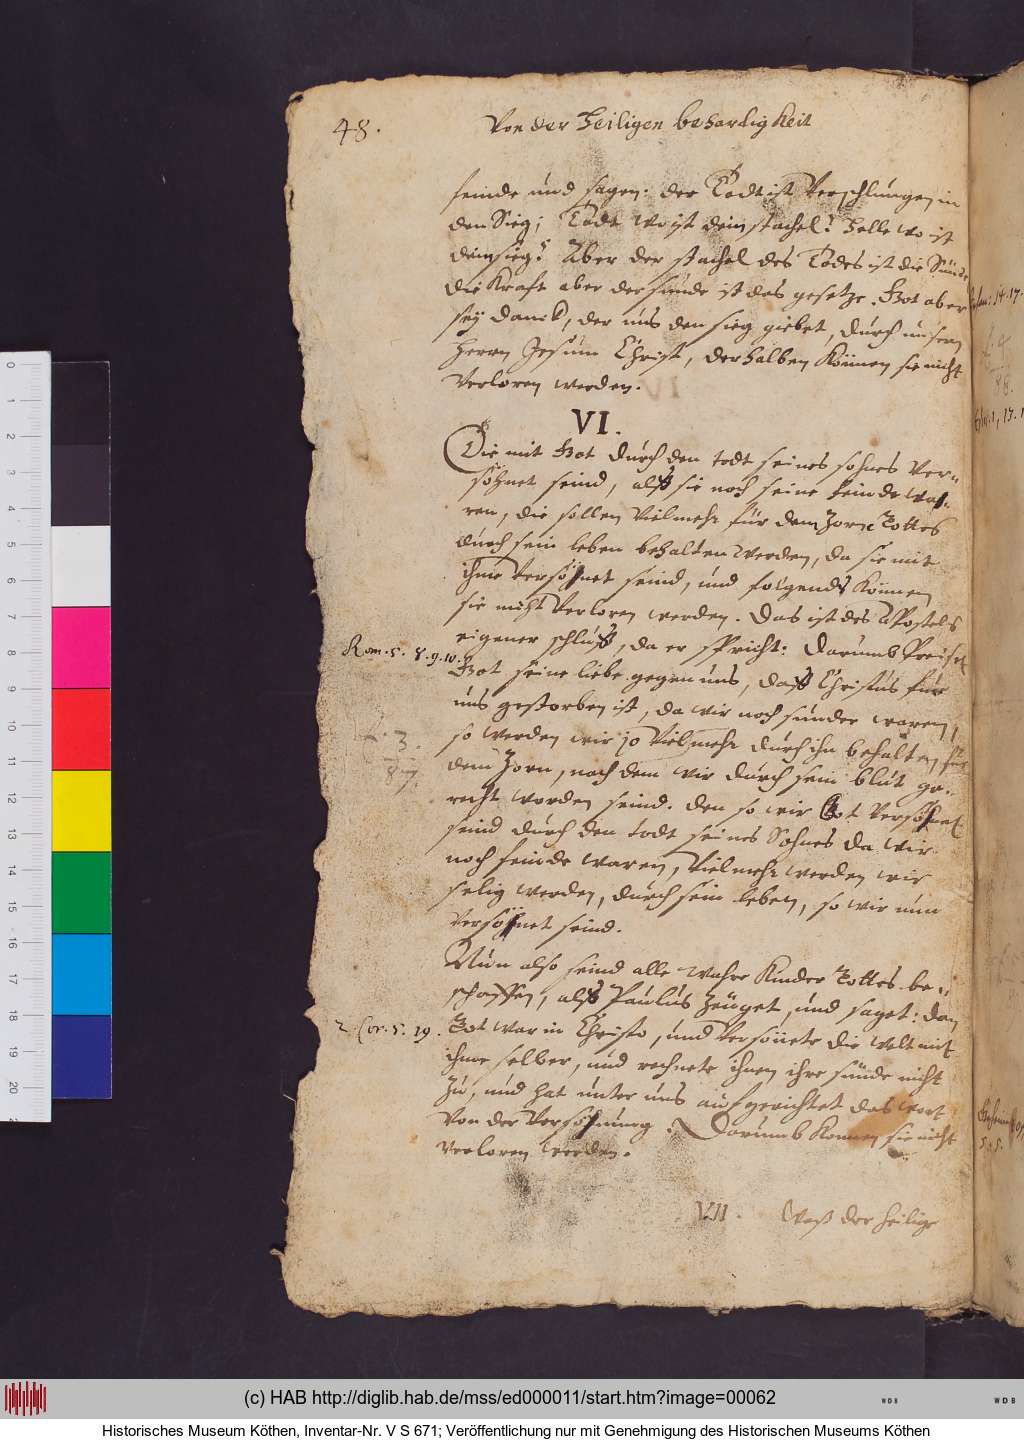 48.
Von der Heiligen behardigkeit
feinde und sagen: der Todt ist Verschlungen in
den Sieg; Todt wo ist dein stachel? Helle wo ist
dein sieg? Aber der stachel des Todes ist die Sünde
die Kraft aber der sünde ist das gesetze. Got aber
seÿ danck, der uns den sieg giebet, durch unsern
Herrn Jesum Christ, derhalben können sie nicht
Verloren werden.
VI.
Die mit Got durch den todt seines sohnes Ver-
söhnet seind, alß sie noch seine feinde wa-
ren, die sollen Vielmehr für dem Zorn Gottes
durch sein leben behalten werden, da sie mit
ihme Versöhnet seind, und folgends können
sie nicht Verloren werden. Das ist des Apostels
eigener schluß, da er spricht: Darumb Preiset
Rom. 5. 8. 9. 10.
Got seine liebe gegen uns, daß Christus für
uns gestorben ist, da wir noch sünder waren,
so werden wir jo Vielmehr durch ihn behalten für
dem Zorn, nach dem wir durch sein blut ge-
recht worden seind. den so wir Got Versöhnet
seind durch den todt seines Sohnes da wir
noch feinde waren, Vielmehr werden wir
selig werden, durch sein leben, so wir nun
Versöhnet seind.
Nun also seind alle wahre Kinder Gottes be-
schaffen, alß Paulus zeuget, und saget: dan
2. Cor. 5. 19.
Got war in Christo, und Versönete die welt mit
ihme selber, und rechnete ihnen ihre sünde nicht
zu, und hat unter uns aufgerichtet das wort
Von der Versöhnung. Darumb können sie nicht
verloren werden.
VII. Waß der heilige
3.
87.
(c) HAB http://diglib.hab.de/mss/ed000011/start.htm?image=00062
WDB
WDB
Historisches Museum Köthen, Inventar-Nr. V S 671; Veröffentlichung nur mit Genehmigung des Historischen Museums Köthen